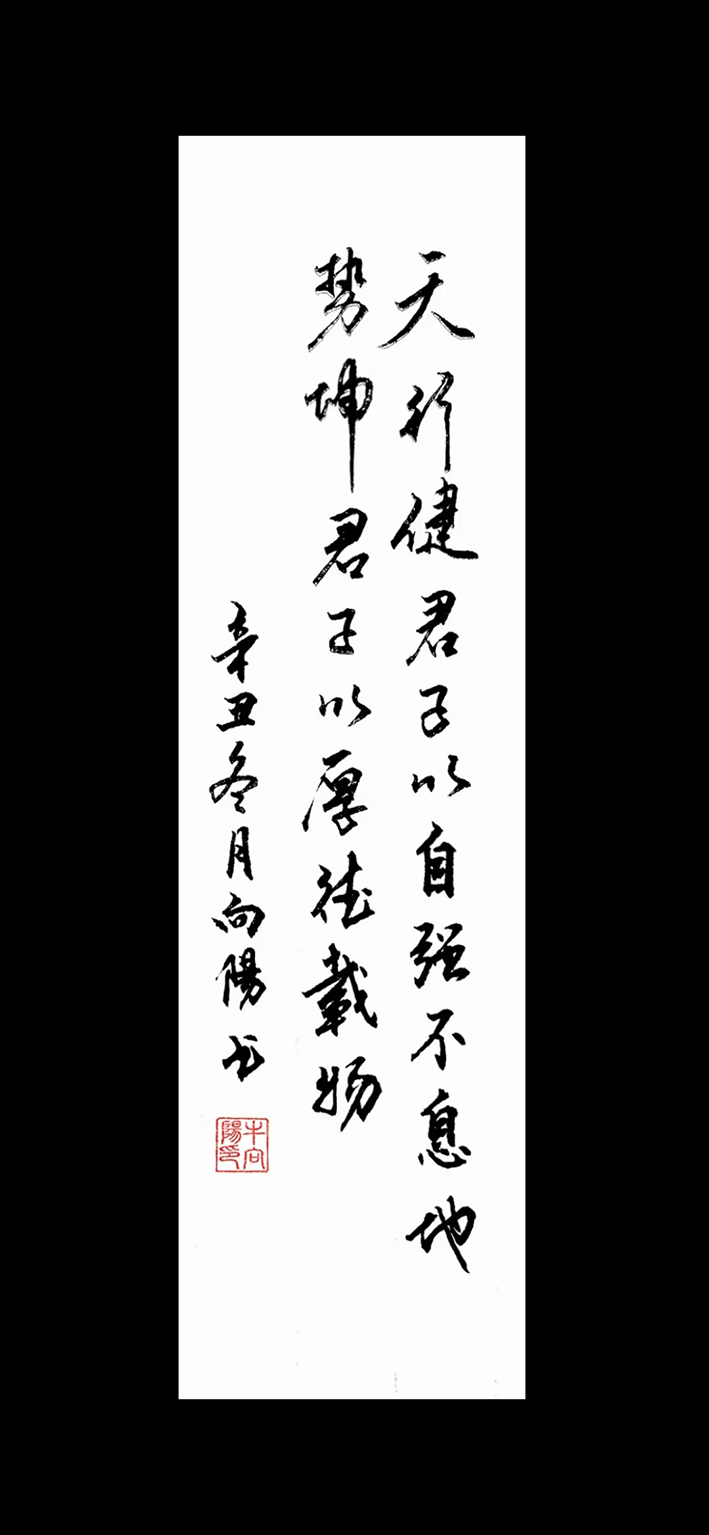 天行健君子以自强不息地
势坤君子以厚德载物
辛丑冬月向陽书
牛向
陽印